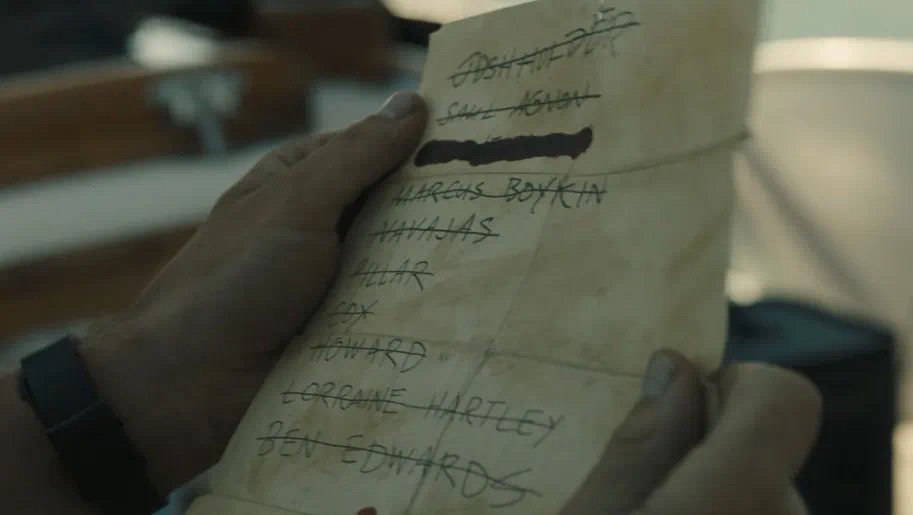 JOSH HOLDER
SAUL AGNON
MARCUS BOYKIN
NAVAJAS
PILLAR
COX
HOWARD
LORRAINE HARTLEY
BEN EDWARDS